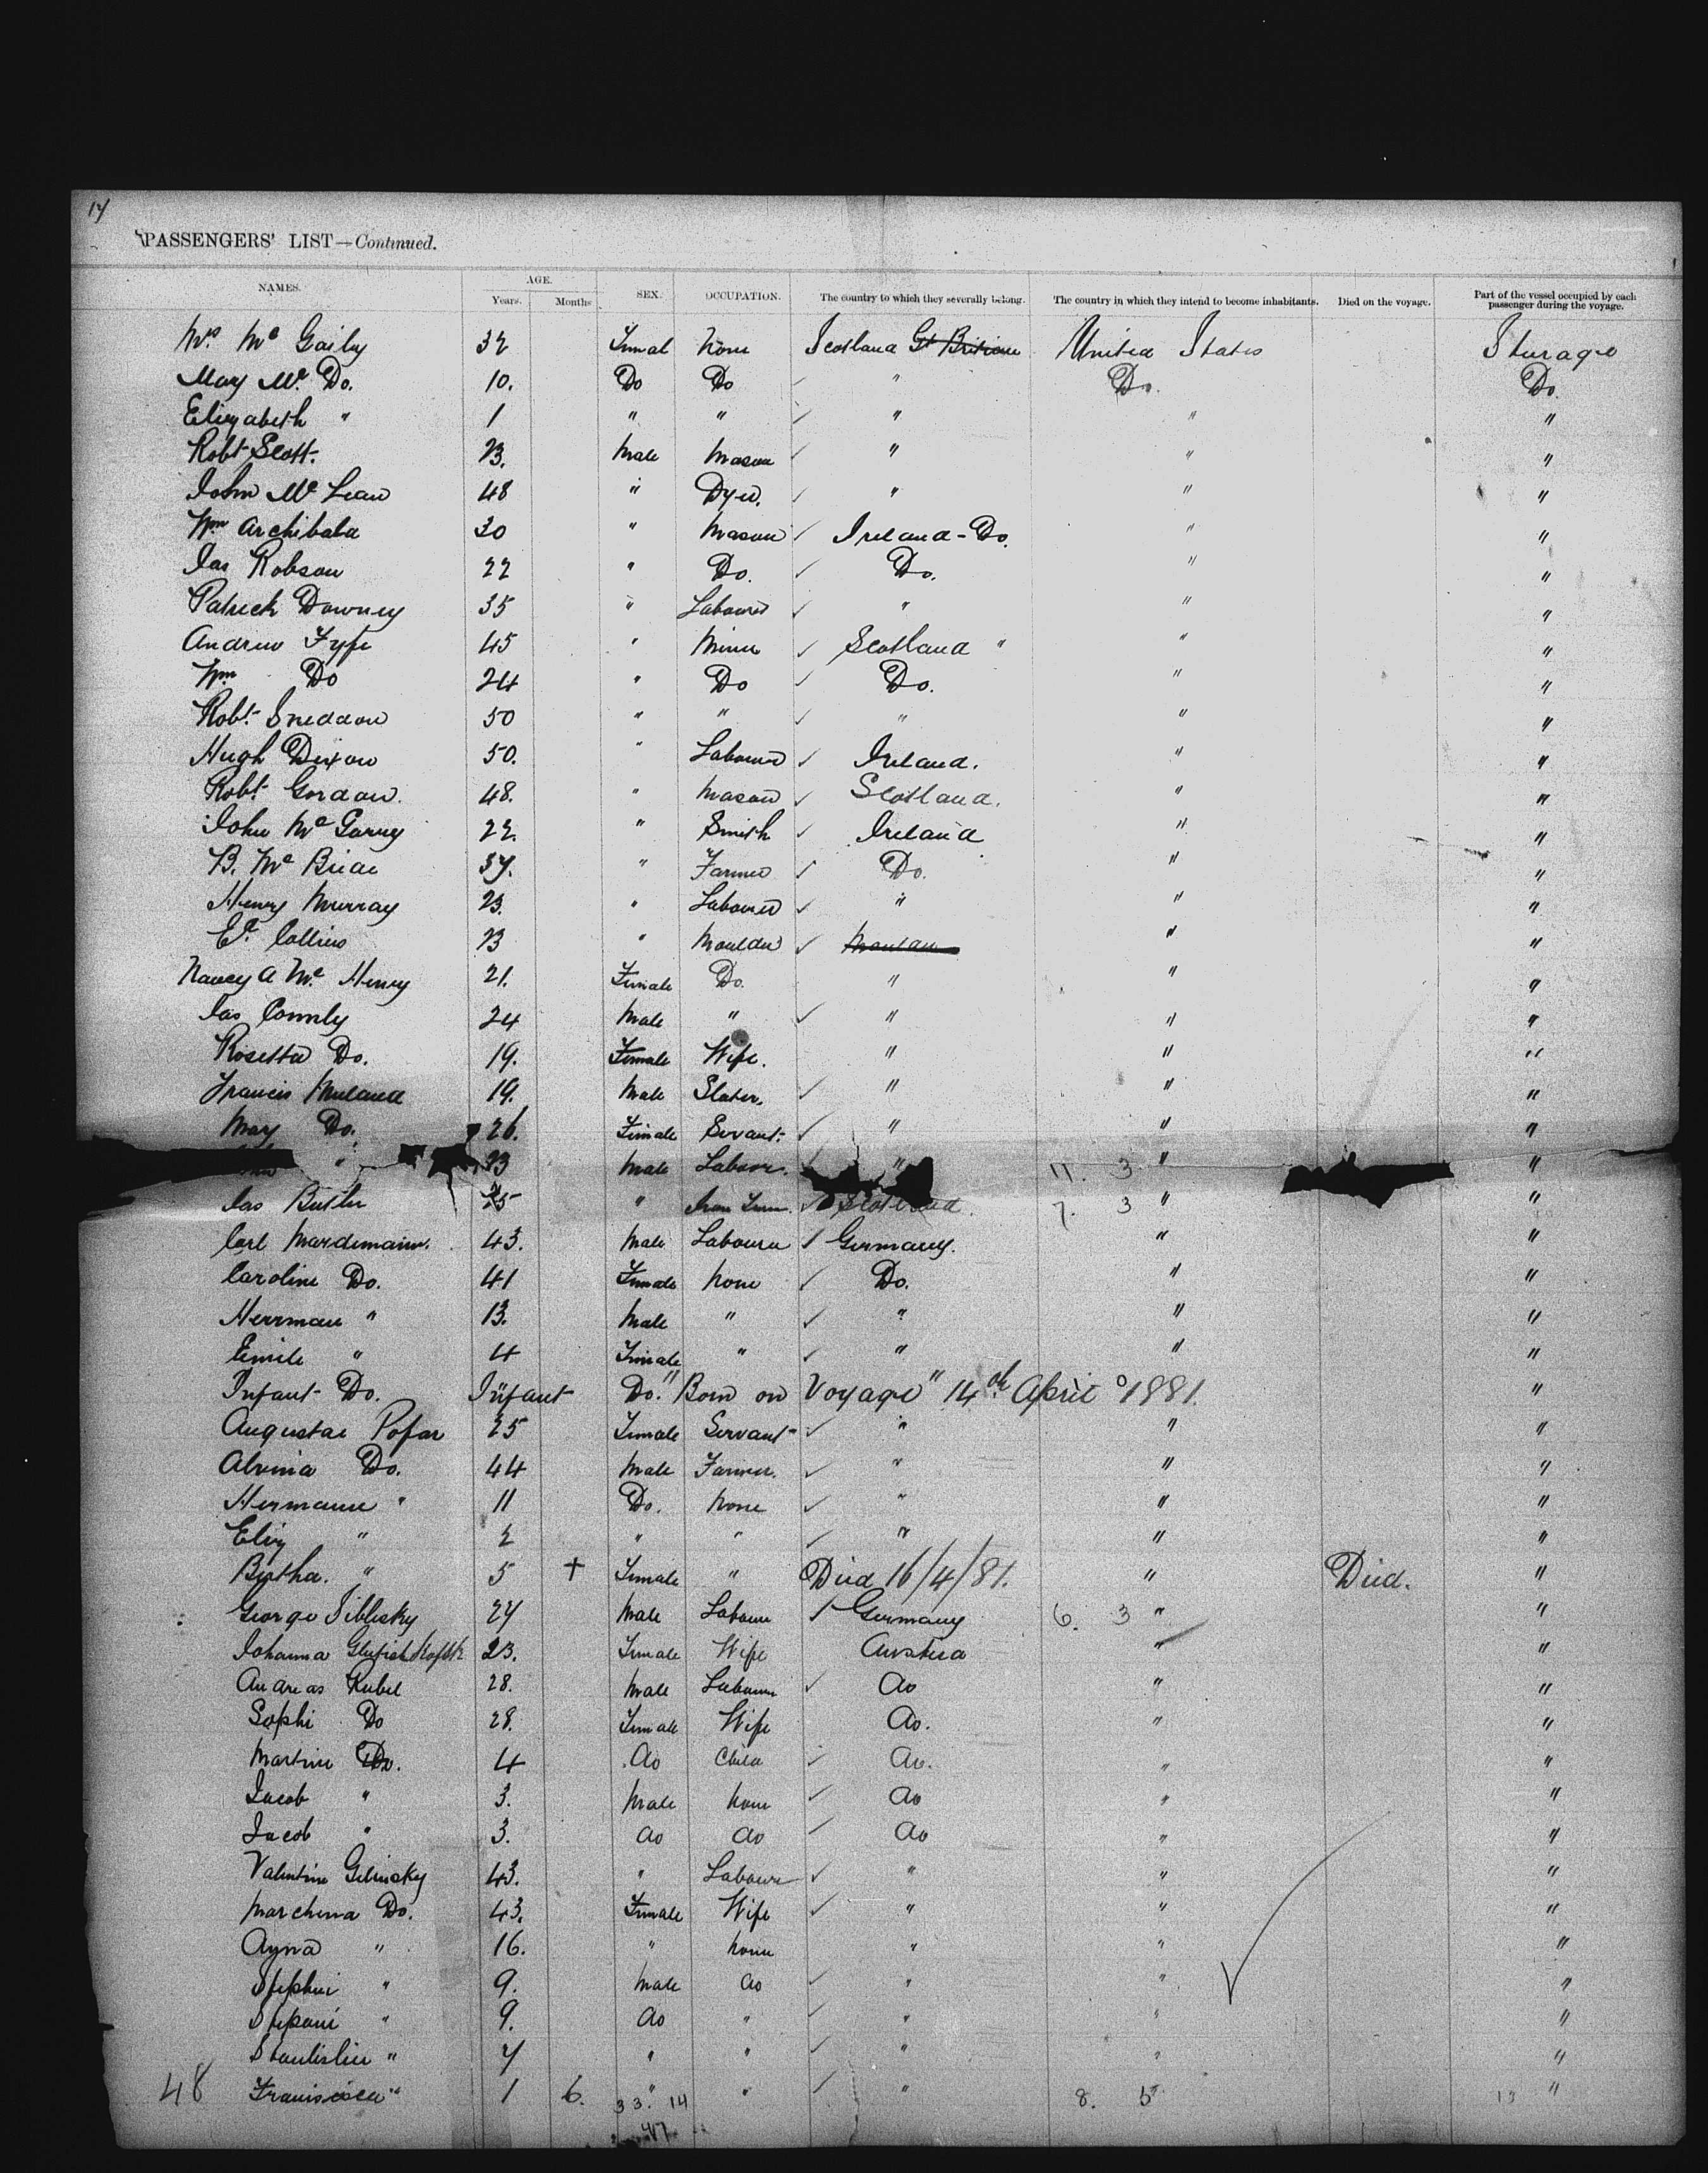 14
PASSENGERS' LIST—Continued.
NAMES. AGE. Years. Months SEX. OCCUPATION. The country to which they severally belong. The country in which they intend to become inhabitants. Died on the voyage. Part of the vessel occupied by each passenger during the voyage.
Mrs Mc Gaily 32 Femal None Scotland Gt Britian United States Sturage
May Mc Do. 10. Do Do " Do. Do.
Elizabeth " 1 " " " " "
Robt Scott. 23. Male Mason " " "
John Mc Lean 48 " Dyer. " " "
Wm Archibald 30 " Mason Ireland - Do. " "
Jas Robson 22 " Do. Do. " "
Patrick Downey 35 " Labourer " " "
Andrew Fyfe 45 " Miner Scotland " " "
Wm Do 24 " Do Do. " "
Robt Sneddon 50 " " " " "
Hugh Dixon 50. " Labourer Ireland. " "
Robt Gordon. 48. " Mason Scotland. " "
John Mc Garvey 22. " Smith Ireland " "
B. Mc Briae 37. " Farmer Do. " "
Henry Murray 23. " Labourer " " "
Ed. Collins 23 " Moulder " "
Nancy A Mc Henry 21. Female Do. " " "
Jas Connly 24 Male " " " "
Rosetta Do. 19. Female Wife. " " "
Francis 19. Male Slater. " " "
May Do. 26. Female Servant. " " "
" 23 Male Labour. " 11. 3 " "
Jas Butler 25 " Iron Turn. Scotland. 7. 3 " "
Carl Mardemann. 43. Male Labourer Germany. " "
Caroline Do. 41 Female None Do. " "
Herrman " 13. Male " " " "
Emile " 4 Female " " " "
Infant Do. Infant Do. "Born on Voyage" 14th April 1881. "
Augustae Pofar 25 Female Servant " " "
Alvina Do. 44 Male Farmer. " " "
Hermann " 11 Do. None " " "
Eliz " 2 " " " " "
Bertha. " 5 + Female " Died 16/4/81. " Died. "
George Siblisky 27 Male Labour Germany 6. 3 " "
Johanna 23. Female Wife Austria " "
Andreas Kubel 28. Male Labourer Do " "
Sophi Do 28. Female Wife Do. " "
Martin Do. 4 Do Child Do. " "
Jacob " 3. Male None Do " "
Jacob " 3. Do Do Do " "
Valentine Gilinsky 43. " Labourer " " "
Marchena Do. 43. Female Wife " " "
Agna " 16. " None " " "
Stephni " 9. Male Do " " "
Stepani " 9. Do " " " "
Stanlislin " 7 " " " " "
48 Francisica " 1 6. " " " 8. 5 " "
33. 14
47